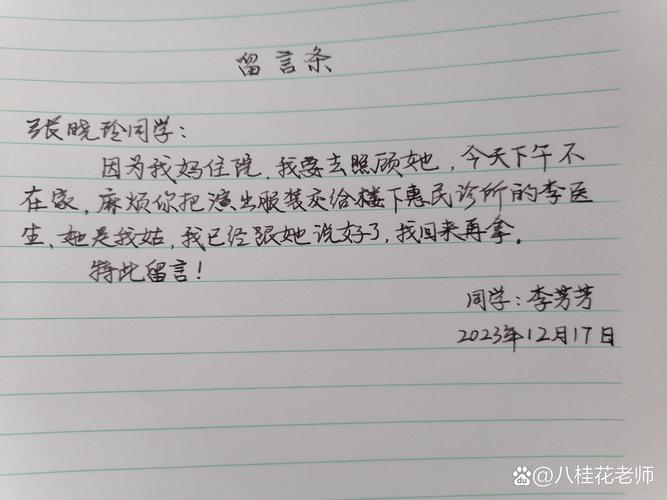 留言条
张晓玲同学：
因为我妈住院，我要去照顾她，今天下午不
在家，麻烦你把演出服装交给楼下惠民诊所的李医
生，她是我姑，我已经跟她说好了，我回来再拿。
特此留言！
同学：李芳芳
2023年12月17日
八桂花老师